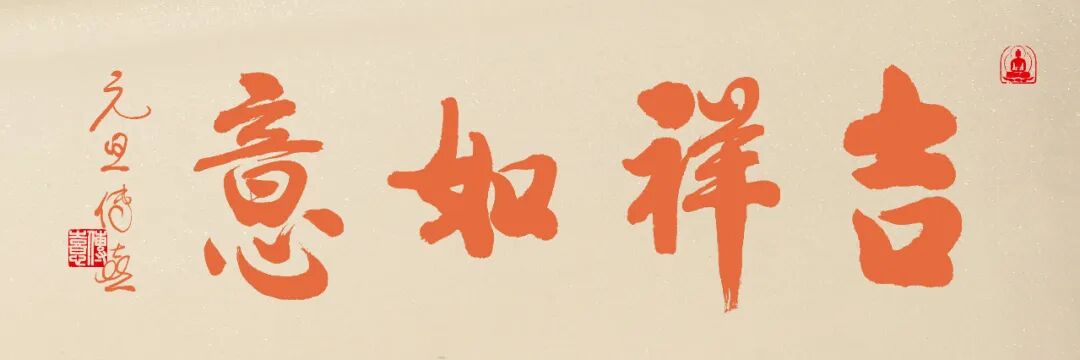 吉祥如意
元旦傳喜
傳喜